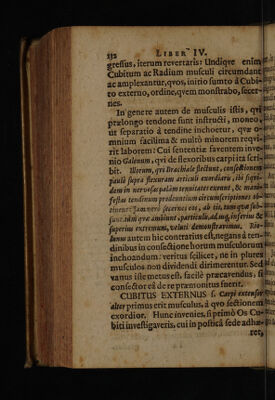 232 LIBER IV.
gressus, iterum revertaris: Undiqve enim
Cubitum ac Radium musculi circumdant
ac amplexantur, qvos, initio sumto à Cubi-
to externo, ordine, qvem monstrabo, secer-
nes.
In genere autem de musculis istis, qvi
prælongo tendone sunt instructi, moneo,
ut separatio à tendine inchoetur, qvæ o-
mnium facilima & multò minorem reqvi-
rit laborem: Cui sententiæ faventem inve-
nio Galenum, qvi de flexoribus carpi ita scri-
bit. Illorum, qvi Brachiale flectunt, consectionem
paulò supra flexuram articuli exordieris, ibi sqvi-
dem in nervosas palàm tenuitates exeunt, & mani-
festæ tendinum prodeuntium circumscriptiones
secernes eos, ab iis,
sunt, tùm qvæ ambiunt, particulis, ad usq, inferius &
superius extremum, veluti demonstravimus.
autem hic contrarius est, negans à ten-
dinibus in consectione horum musculorum
inchoandum: veritus scilicet, ne in plures
musculos non dividendi dirimerentur. Sed
vanus iste metus est, facilè præcavendus, si
consector eâ de re præmonitus fuerit.
CUBITUS EXTERNUS s. Carpi extensor
alter primus erit musculus, à qvo sectionem
exordior. Hunc invenies, si primò Os Cu-
biti investigaveris, cui in posticâ sede adhæ-
ret,